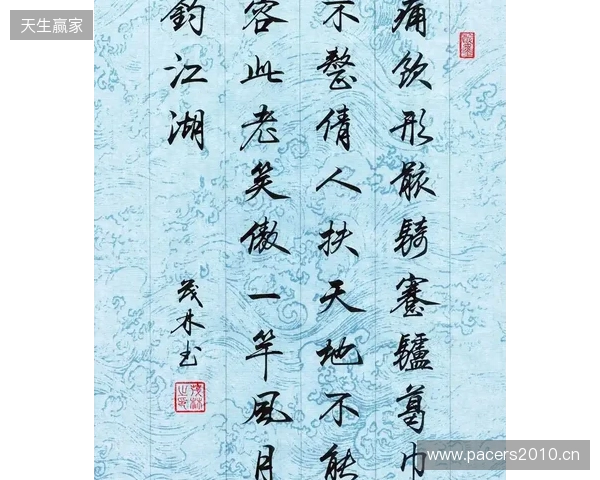 天生赢家
痛飲形骸騎蹇驢葛巾
不整倩人扶天地不能
容此老笑傲一竿風月
釣江湖
茂林书
www.pacers2010.cn